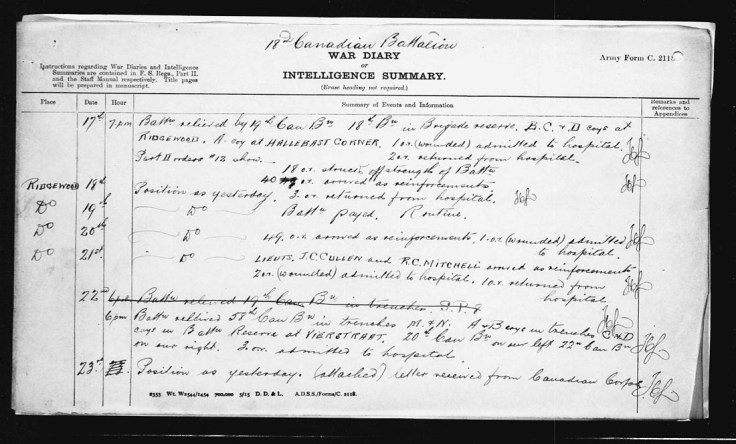 18th Canadian Battalion
WAR DIARY
or
INTELLIGENCE SUMMARY.
(Erase heading not required.)
Army Form C. 2118
Instructions regarding War Diaries and Intelligence
Summaries are contained in F. S. Regs., Part II.
and the Staff Manual respectively. Title pages
will be prepared in manuscript.
Place Date Hour Summary of Events and Information Remarks and references to Appendices
17th 7pm Battn relieved by 19th Can Bn 18th Bn in Brigade reserve. B.C. & D coys at
RIDGEWOOD. A. coy at HALLEBAST CORNER. 1 o.r. (wounded) admitted to hospital.
Part II orders #12 show 2 o.r. returned from hospital.
18 o.r. struck off strength of Battn
40 o.r. arrived as reinforcements
RIDGEWOOD 18th Position as yesterday. 3 o.r. returned from hospital.
Do 19th Do Battn payed. Routine.
Do 20th Do 49 o.r. arrived as reinforcements. 1 o.r. (wounded) admitted
to hospital.
Do 21st Do LIEUTS. J.C. CULLEN and R.C. MITCHELL arrived as reinforcements
2 o.r. (wounded) admitted to hospital. 1 o.r. returned from
hospital
22nd Battn relieved 19th Can Bn in trenches
6pm Battn relived 58th Can Bn in trenches M. & N. A & B coys in trenches C & D
coys in Battn Reserve at VIERSTRAAT. 20th Can Bn on our left 22nd Can Bn
on our right. 3 o.r. admitted to hospital.
23rd Position as yesterday. (attached) letter received from Canadian Corps
2353 Wt. W2544/1454 700,000 5/15 D. D. & L. A.D.S.S./Forms/C. 2118.